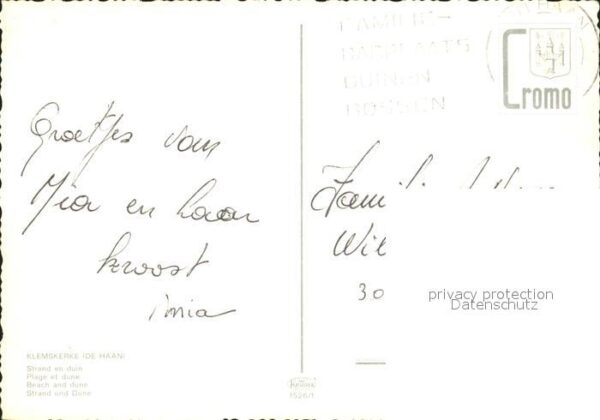 FAMILIE-
BADPLAATS
DUINEN
BOSSEN
Cromo
Groetjes van
Mia en haar
kroost
Familie
Wil
30
privacy protection
Datenschutz
KLEMSKERKE (DE HAAN)
Strand en duin
Plage et dune
Beach and dune
Strand und Düne